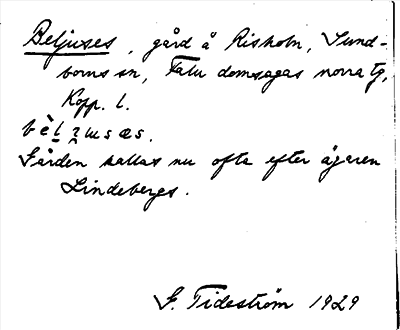 Beljuses, gård å Risholn, Sund-
borns sn, Falu domsagas norra tg,
Kopp. l.
Gården kallas nu ofta efter ägaren
Lindebergs.
S. Tideström 1929